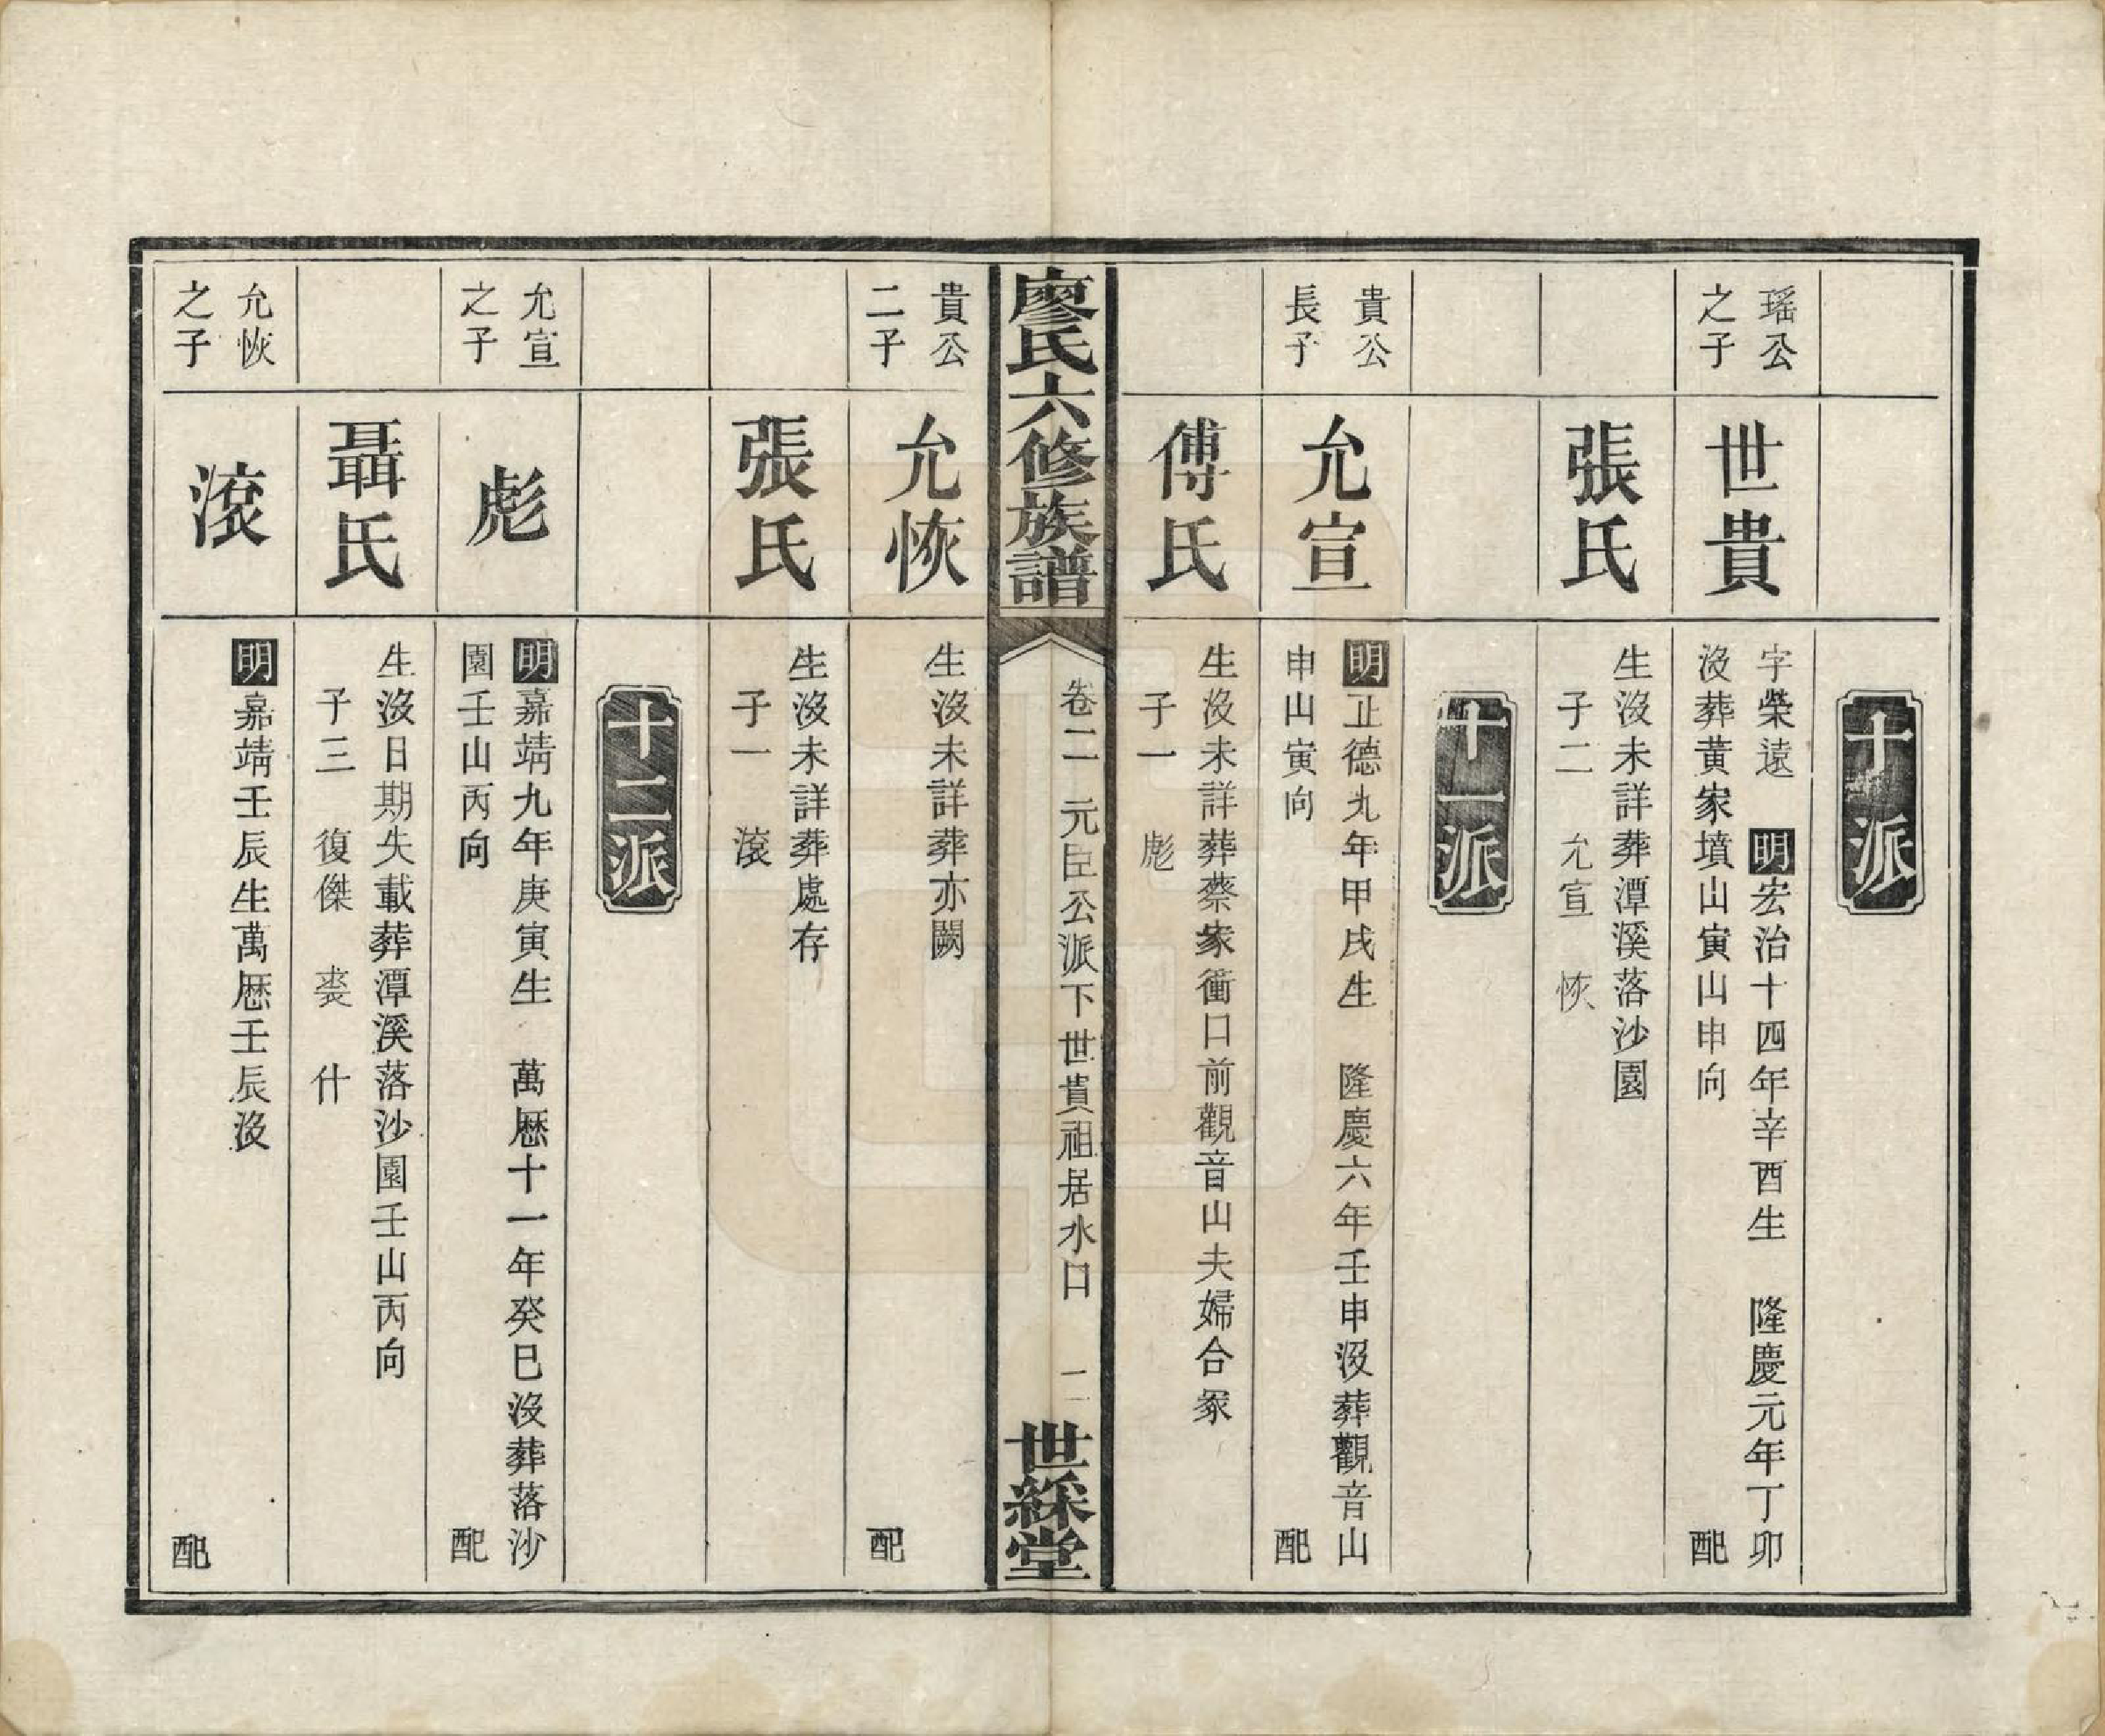 十派
瑤公
之子
世貴
字榮遠 明宏治十四年辛酉生 隆慶元年丁卯
沒葬黃家墳山寅山申向 配
張氏
生沒未詳葬潭溪落沙園
子二 允宣 恢
十一派
貴公
長子
允宣
明正德九年甲戌生 隆慶六年壬申沒葬觀音山
申山寅向 配
傅氏
生沒未詳葬蔡家衝口前觀音山夫婦合冢
子一 彪
廖氏六修族譜
卷二 元臣公派下世貴祖居水口 二
世綵堂
貴公
二子
允恢
生沒未詳葬亦闕
配
張氏
生沒未詳葬處存
子一 滾
十二派
允宣
之子
彪
明嘉靖九年庚寅生 萬歷十一年癸巳沒葬落沙
園壬山丙向 配
聶氏
生沒日期失載葬潭溪落沙園壬山丙向
子三 復傑 裘 什
允恢
之子
滾
明嘉靖壬辰生萬歷壬辰沒
配